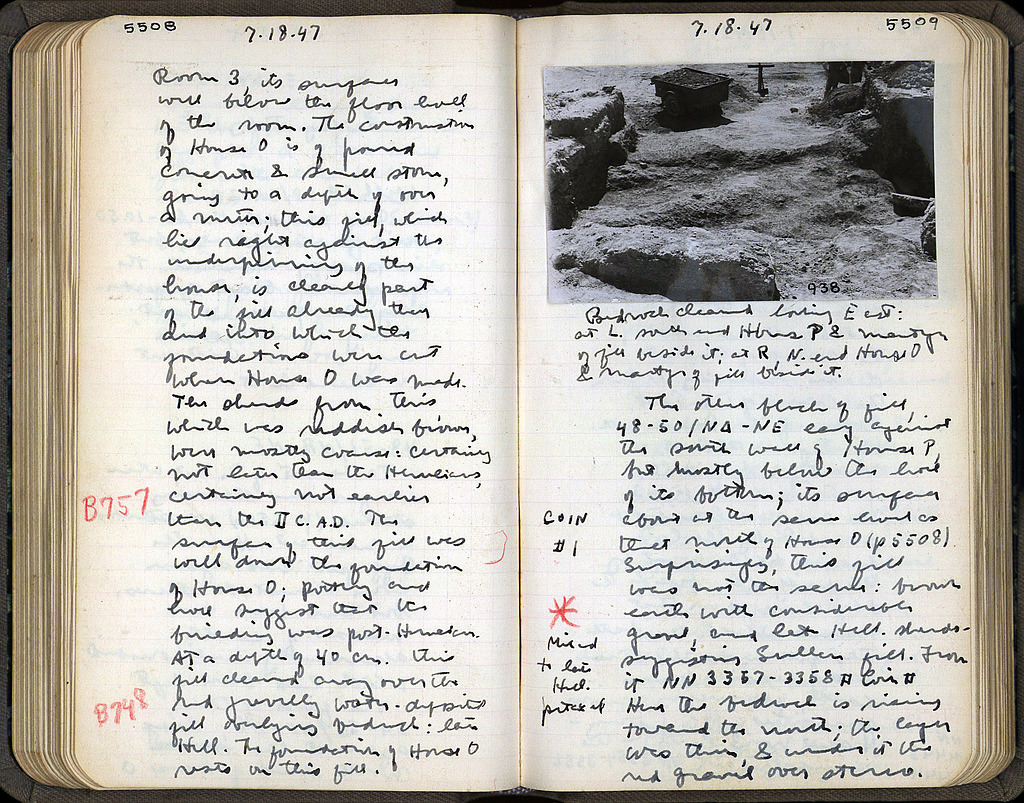 5508
7.18.47
Room 3, its surface
well below the floor level
of the room. The construction
of House O is of poured
concrete & small stone,
going to a depth of over
a meter; this fill, which
lies right against the
underpinning of the
house, is clearly part
of the fill already there
and into which the
foundations were cut
when House O was made.
The sherds from this,
which was reddish brown,
were mostly coarse: certainly
not later than the Herulians,
certainly not earlier
than the II C. A.D. The
surface of this fill was
well down the foundation
of House O; pottery and
level suggest that the
building was post-Herulian.
At a depth of 40 cm. this
fill cleared away over the
red gravelly water-deposited
fill overlying bedrock: late
Hell. The foundation of House O
rests on this fill.
B757
B748
5509
7.18.47
938
Bedrock cleared looking East:
at L. south end House P &
of fill beside it; at R, N. end House O
& of fill beside it.
The other block of fill,
48-50/NA-NE lay against
the south wall of House P,
but mostly below the level
of its bottom; its surface
about at the same level as
that north of House O (p 5508).
Surprisingly, this fill
was not the same: brown
earth with considerable
gravel, and late Hell. sherds-
suggesting Sullan fill. From
it NN 3357-3358 # Coin #
Here the bedrock is rising
toward the north; the layer
was thin, & under it the
red gravel over stereo.
COIN
#1
Mixed
to late
Hell.